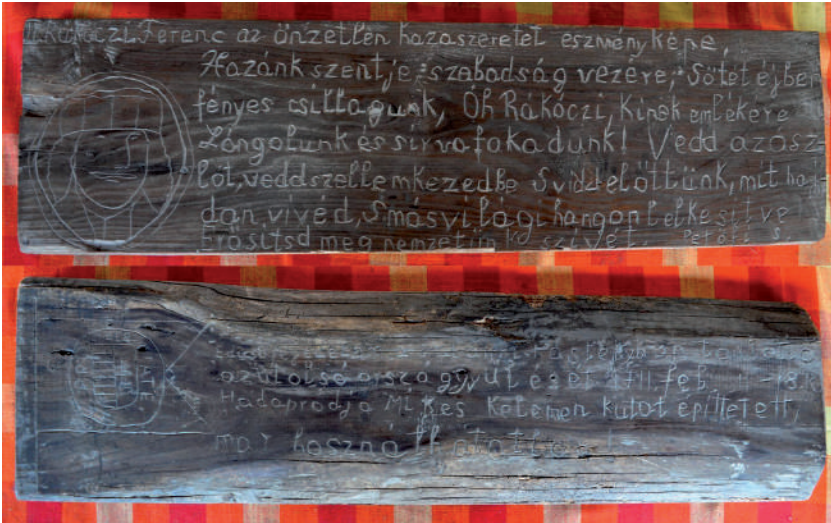 II. Rákóczi Ferenc az önzetlen hazaszeretet eszményképe,
Hazánk szentje, szabadság vezére, Sötét éjben
fényes csillagunk, Óh Rákóczi, kinek emlékére
Lángolunk és sírva fakadunk! Vedd a zász-
lót, vedd szellemkezedbe S vidd előttünk, mint ha j
dan vivéd, S másvilági hangon lelkesítve
Erősítsd meg nemzetünk szívét. Petőfi S.
tartotta
az utolsó országgyűlését 1711. feb
Hadapródja Mikes Kelemen kutat építtetett,
ma használható